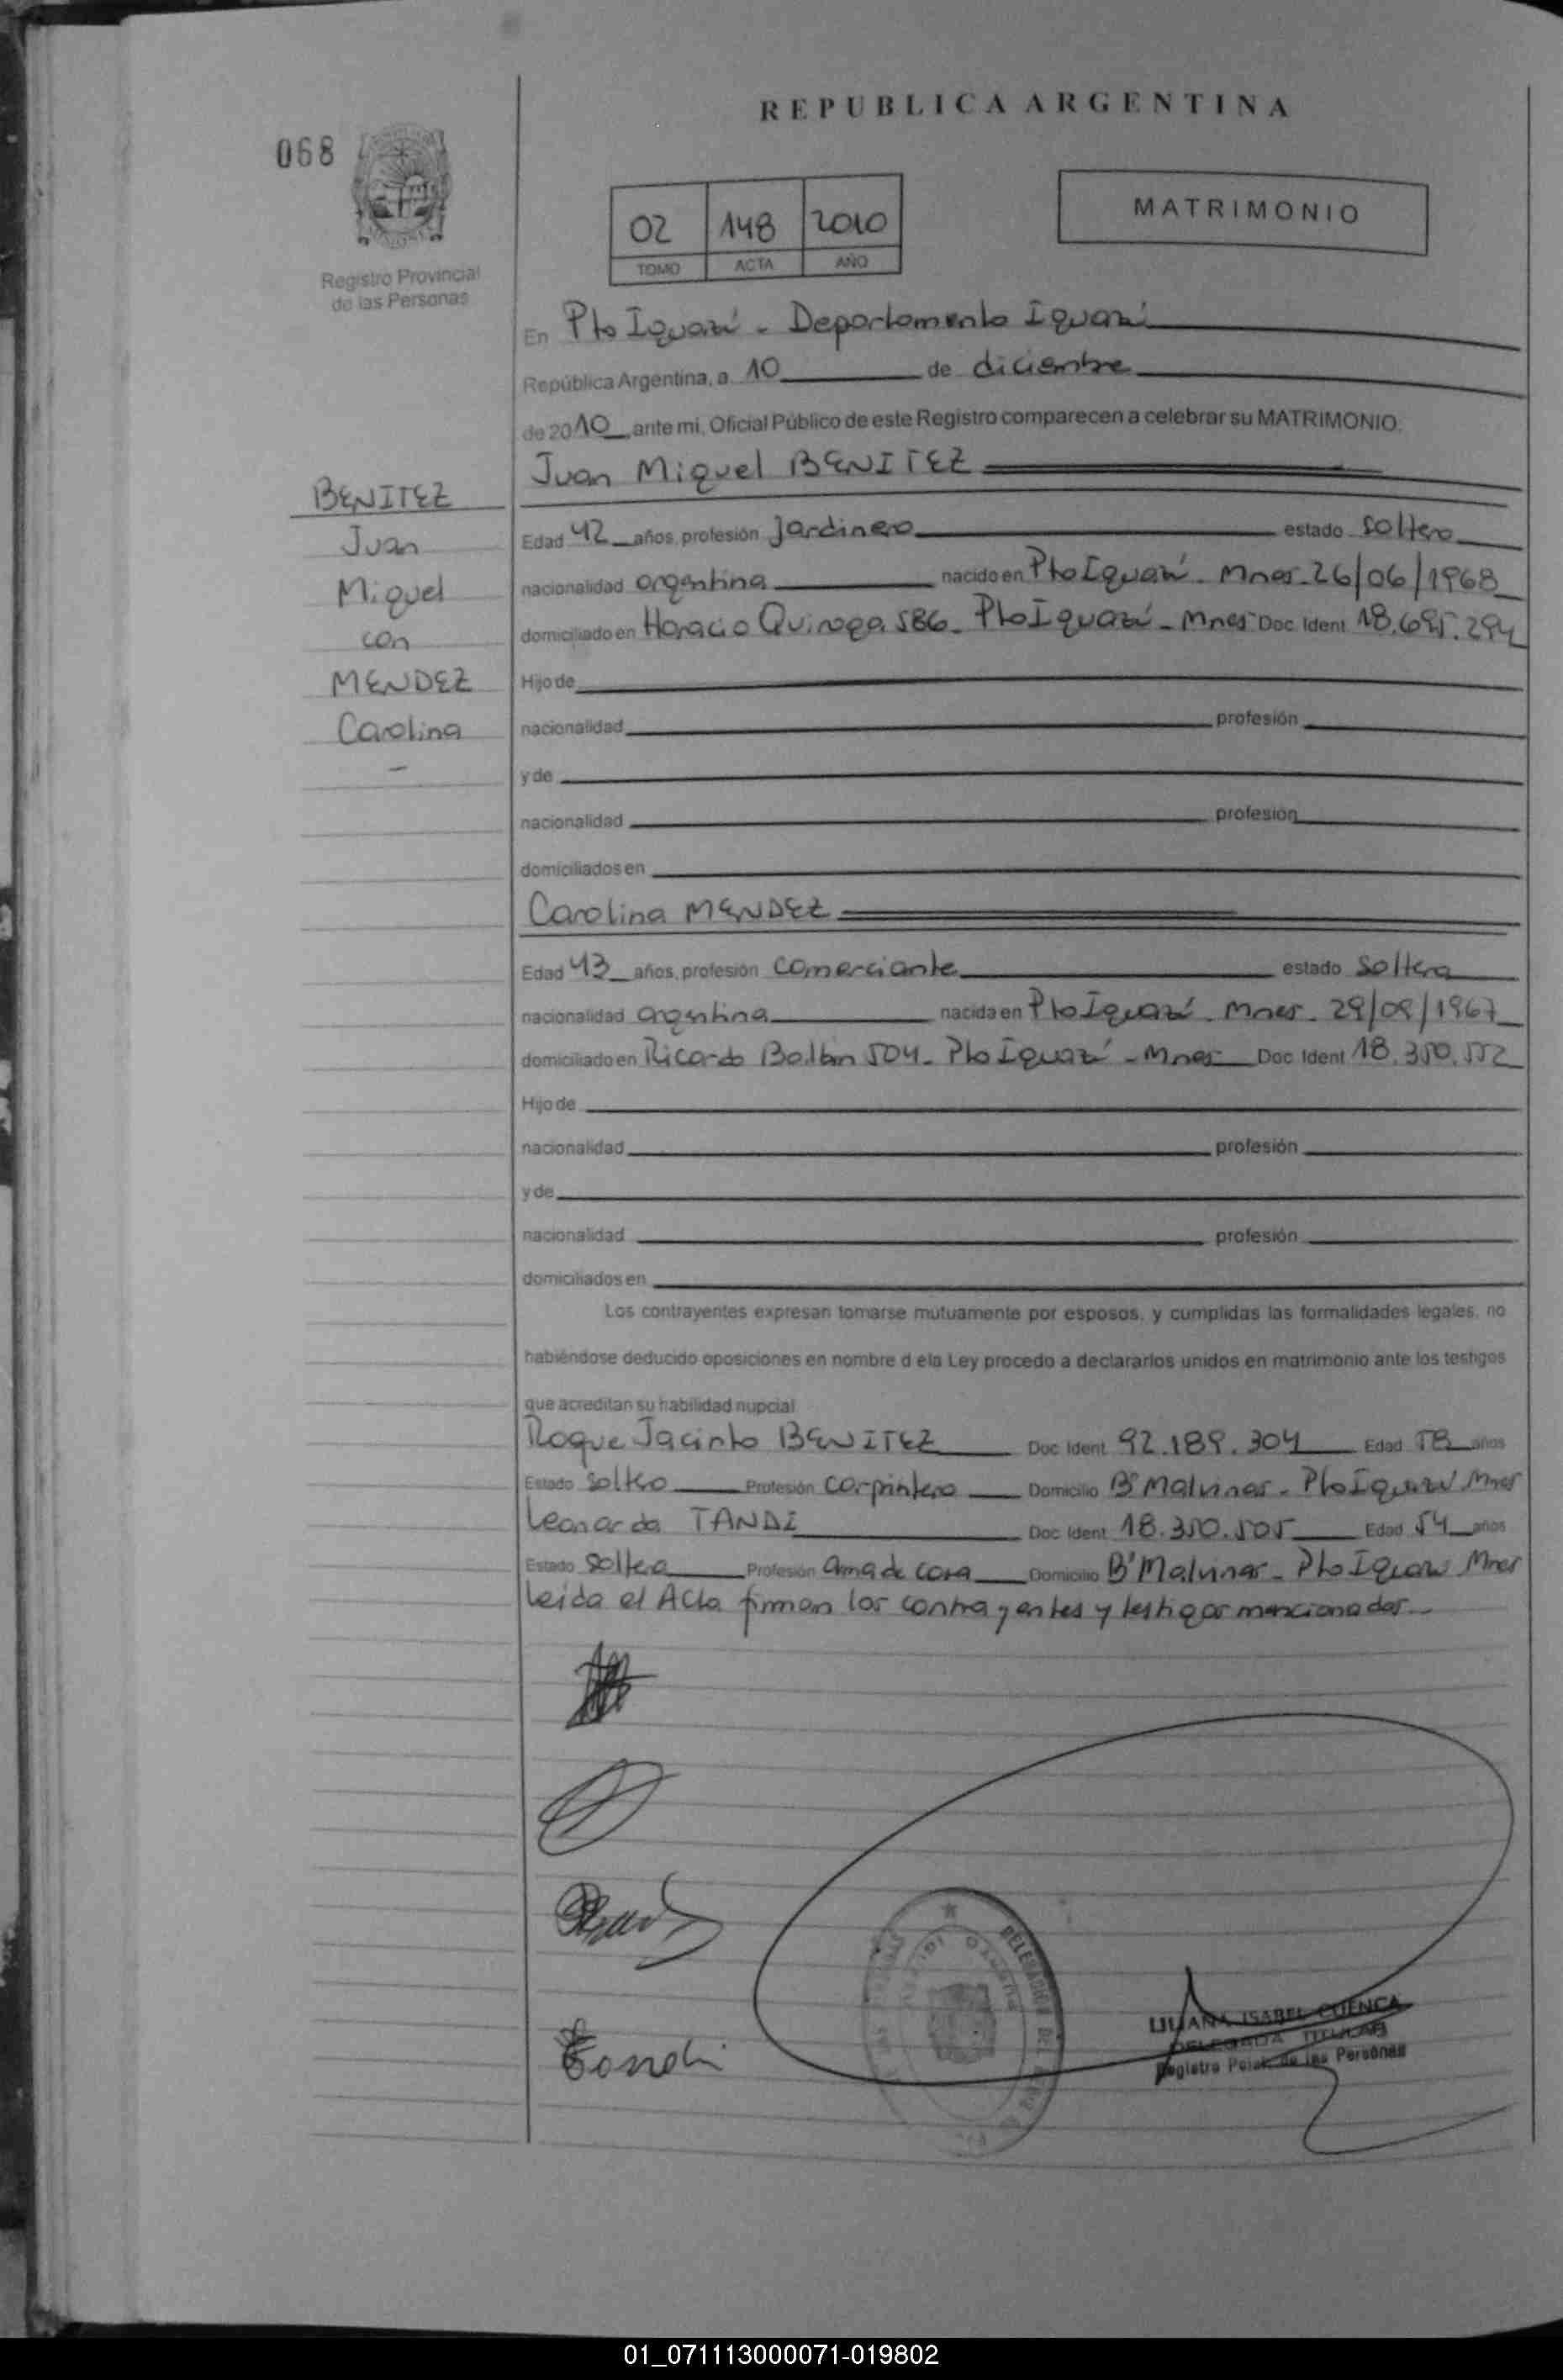 REPUBLICA ARGENTINA
068
MATRIMONIO
02 148 2010
TOMO ACTA AÑO
Registro Provincial
de las Personas
En Pto Iguazú - Departamento Iguazú
República Argentina, a 10 de diciembre
de 2010 ante mi, Oficial Público de este Registro comparecen a celebrar su MATRIMONIO.
Juan Miguel BENITEZ
BENITEZ
Juan
Miguel
con
MENDEZ
Carolina
Edad 42 años, profesión Jardinero estado soltero
nacionalidad argentina nacido en Pto Iguazú - Mnes - 26/06/1968
domiciliado en Horacio Quiroga 586 - Pto Iguazú - Mnes Doc Ident 18.695.294
Hijo de
nacionalidad profesión
y de
nacionalidad profesión
domiciliados en
Carolina MENDEZ
Edad 43 años, profesión comerciante estado soltera
nacionalidad argentina nacida en Pto Iguazú - Mnes - 29/09/1967
domiciliado en Ricardo Balbin 504 - Pto Iguazú - Mnes Doc Ident 18.350.552
Hijo de
nacionalidad profesión
y de
nacionalidad profesión
domiciliados en
Los contrayentes expresan tomarse mutuamente por esposos, y cumplidas las formalidades legales, no
habiéndose deducido oposiciones en nombre d ela Ley procedo a declararlos unidos en matrimonio ante los testigos
que acreditan su habilidad nupcial
Roque Jacinto BENITEZ Doc Ident 92.189.304 Edad 58 años
Estado soltero Profesión carpintero Domicilio B° Malvinas - Pto Iguazú Mnes
Leonarda TANDI Doc Ident 18.350.505 Edad 54 años
Estado soltera Profesión ama de casa Domicilio B° Malvinas - Pto Iguazú Mnes
Leída el Acta firman los contrayentes y testigos mencionados
LILIANA ISABEL CUENCA
DELEGADA TITULAR
Registro Pcial. de las Personas
01_071113000071-019802